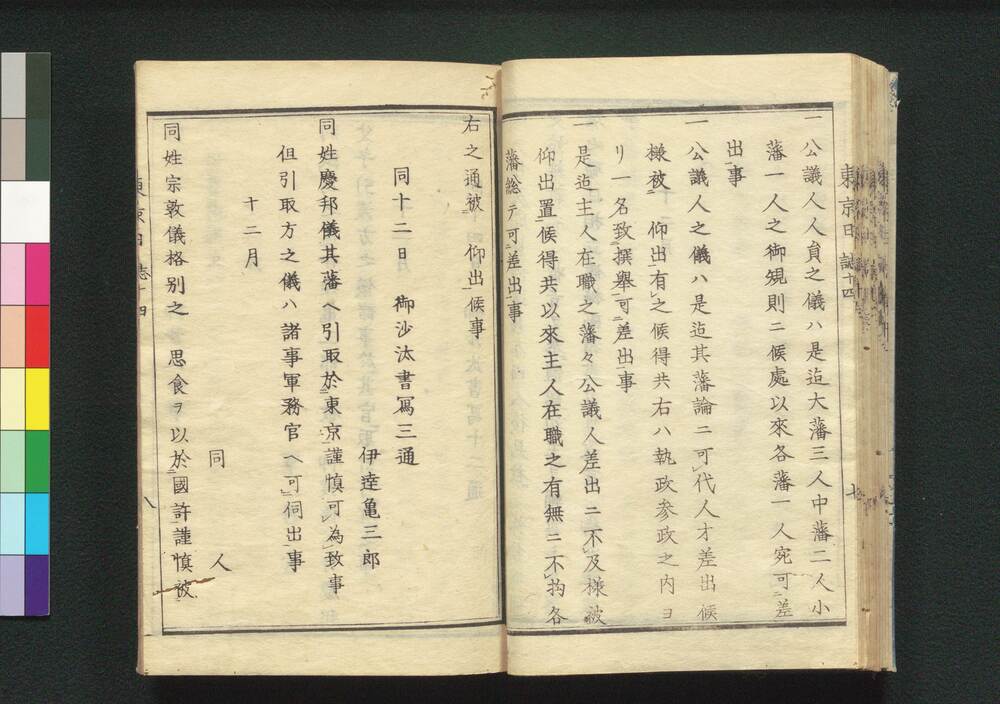 東京日誌十四
七
一公議人人員之儀ハ是迄大藩三人中藩二人小
藩一人之御規則ニ候處以來各藩一人宛可ニ差
出一事
一公議人之儀ハ是迄其藩論ニ可レ代人才差出候
樣被ニ 仰出一有レ之候得共右ハ執政參政之內ヨ
リ一名致ニ撰擧一可ニ差出一事
一是迄主人在職之藩々公議人差出ニ不レ及樣被ニ
仰出置一候得共以來主人在職之有無ニ不レ拘各
藩總テ可ニ差出一事
右之通被ニ 仰出一候事
同十二日御沙汰書寫三通
伊達亀三郎
同姓慶邦儀其藩へ引取於ニ東京一謹愼可レ爲レ致事
但引取方之儀ハ諸事軍務官へ可ニ伺出一事
十二月
同 人
同姓宗敦儀格別之 思食ヲ以於ニ國許一謹愼被
東京日誌十四
八